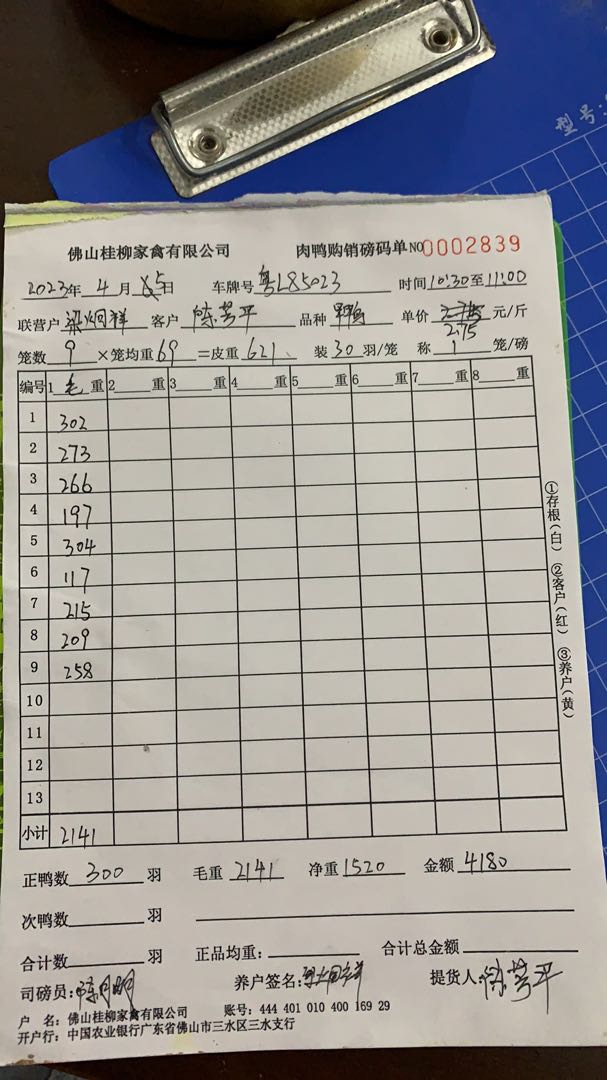 型号:
佛山桂柳家禽有限公司 肉鸭购销磅码单 NO 0002839
2023年 4月 5日 车牌号 粤L85023 时间 10:30至11:00
联营户 梁炯祥 客户 陈芳平 品种 单价 2.75 元/斤
笼数 9 ×笼均重 69 =皮重 621 装 30 羽/笼 称 1 笼/磅
编号 1 毛 重 2 重 3 重 4 重 5 重 6 重 7 重 8 重
1 302
2 273
3 266
4 197
5 304
6 117
7 215
8 209
9 258
10
11
12
13
小计 2141
①存根(白) ②客户(红) ③养户(黄)
正鸭数 300 羽 毛重 2141 净重 1520 金额 4180
次鸭数 羽
合计数 羽 正品均重: 合计总金额
司磅员: 养户签名: 梁炯祥 提货人: 陈芳平
户 名: 佛山桂柳家禽有限公司 账号: 444 401 010 400 169 29
开户行: 中国农业银行广东省佛山市三水区三水支行